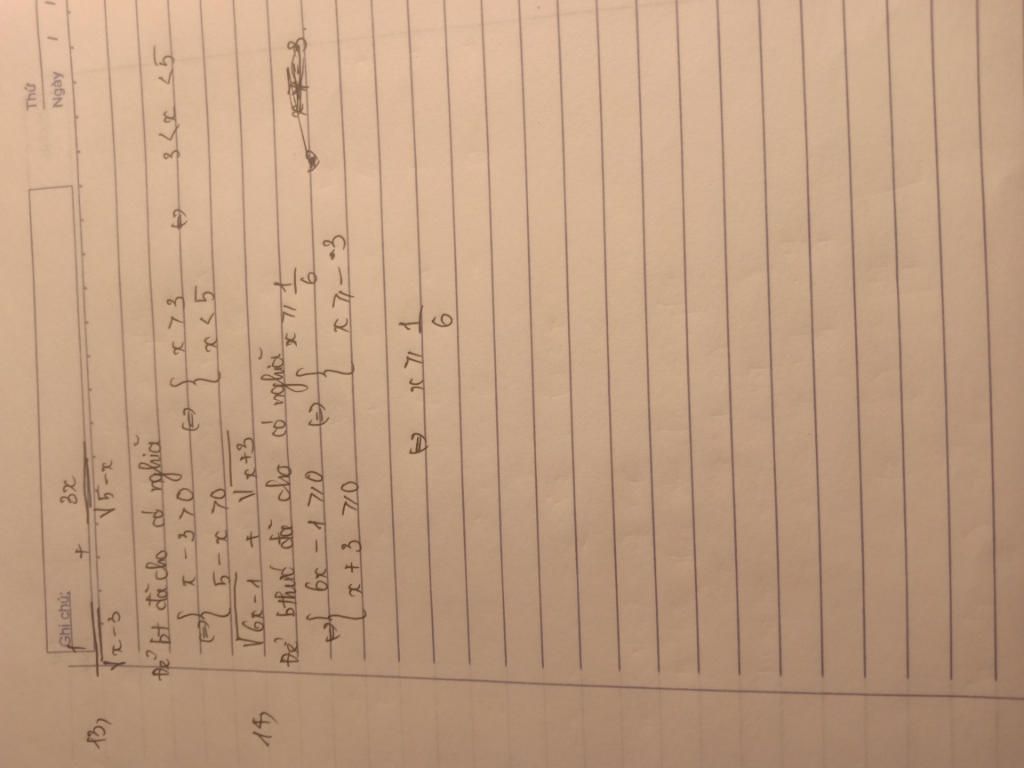 Thứ
Ngày
Ghi chú:
13, 1/√(x-3) + 3x/√(5-x)
Để bt đã cho có nghĩa
(=) { x - 3 > 0 (=) { x > 3 (=) 3 < x < 5
{ 5 - x > 0 { x < 5
√(6x-1) + √(x+3)
Để bthức đã cho có nghĩa
(=) { 6x - 1 ≥ 0 (=) { x ≥ 1/6
{ x + 3 ≥ 0 { x ≥ -3
(=) x ≥ 1/6